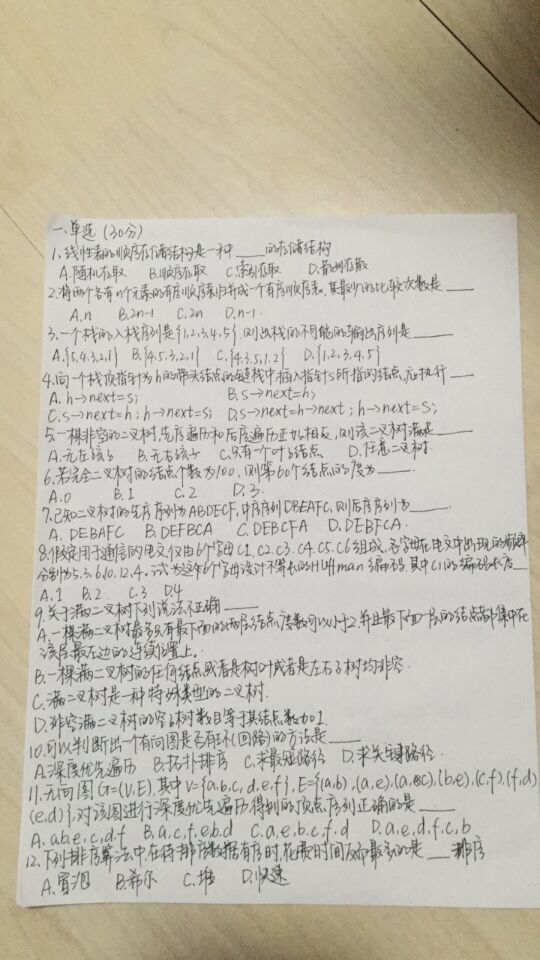 一.单选(30分)
1.线性表的顺序存储结构是一种____的存储结构
A.随机存取 B.顺序存取 C.索引存取 D.散列存散
2.将两个各有n个元素的有序顺序表归并成一个有序顺序表,其最少的比较次数是____
A.n B.2n-1 C.2n D.n-1
3.一个栈的入栈序列是{1,2,3,4,5},则出栈的不可能的输出序列是____
A.{5,4,3,2,1} B.{4,5,3,2,1} C.{4,3,5,1,2} D.{1,2,3,4,5}
4.向一个栈顶指针为h的带头结点的链栈中插入指针s所指的结点,应执行____
A.h→next=s; B.s→next=h;
C.s→next=h;h→next=s; D.s→next=h→next;h→next=s;
5.一棵非空的二叉树,先序遍历和后序遍历正好相反,则该二叉树满足____
A.无左孩子 B.无右孩子 C.只有一个叶子结点 D.任意二叉树.
6.若完全二叉树的结点个数为100,则第60个结点的度为____.
A.0 B.1 C.2 D.3.
7.已知二叉树的先序序列为ABDECF,中序序列DBEAFC,则后序序列为____
A.DEBAFC B.DEFBCA C.DEBCFA D.DEBFCA.
8.假定用于通信的电文仅由6个字母C1、C2、C3、C4、C5、C6组成,各字母在电文中出现的频率
分别为5、3、6、10、12、4。试为这6个字母设计不等长的Huffman编码,其中C1的编码长度____
A.1 B.2. C.3 D.4
9.关于满二叉树下列说法不正确____
A.一棵满二叉树最多只有最下面的两层结点度数可以小于2,并且最下面一层的结点都集中在
该层最左边的连续位置上.
B.一棵满二叉树的任何结点或者是树叶或者是左右子树均非空.
C.满二叉树是一种特殊类型的二叉树.
D.非空满二叉树的空子树数目等于其结点数加1
10.可以判断出一个有向图是否有环(回路)的方法是____
A.深度优先遍历 B.拓扑排序 C.求最短路径 D.求关键路径.
11.无向图G=(V,E),其中V={a,b,c,d,e,f},E={(a,b),(a,e),(a,c),(b,e),(c,f),(f,d)
(e,d)},对该图进行深度优先遍历,得到的顶点序列正确的是____
A.a,b,e,c,d,f B.a,c,f,e,b,d C.a,e,b,c,f,d D.a,e,d,f,c,b
12.下列排序算法中,在待排序数据有序时,花费时间反而最多的是____排序
A.冒泡 B.希尔 C.堆 D.快速